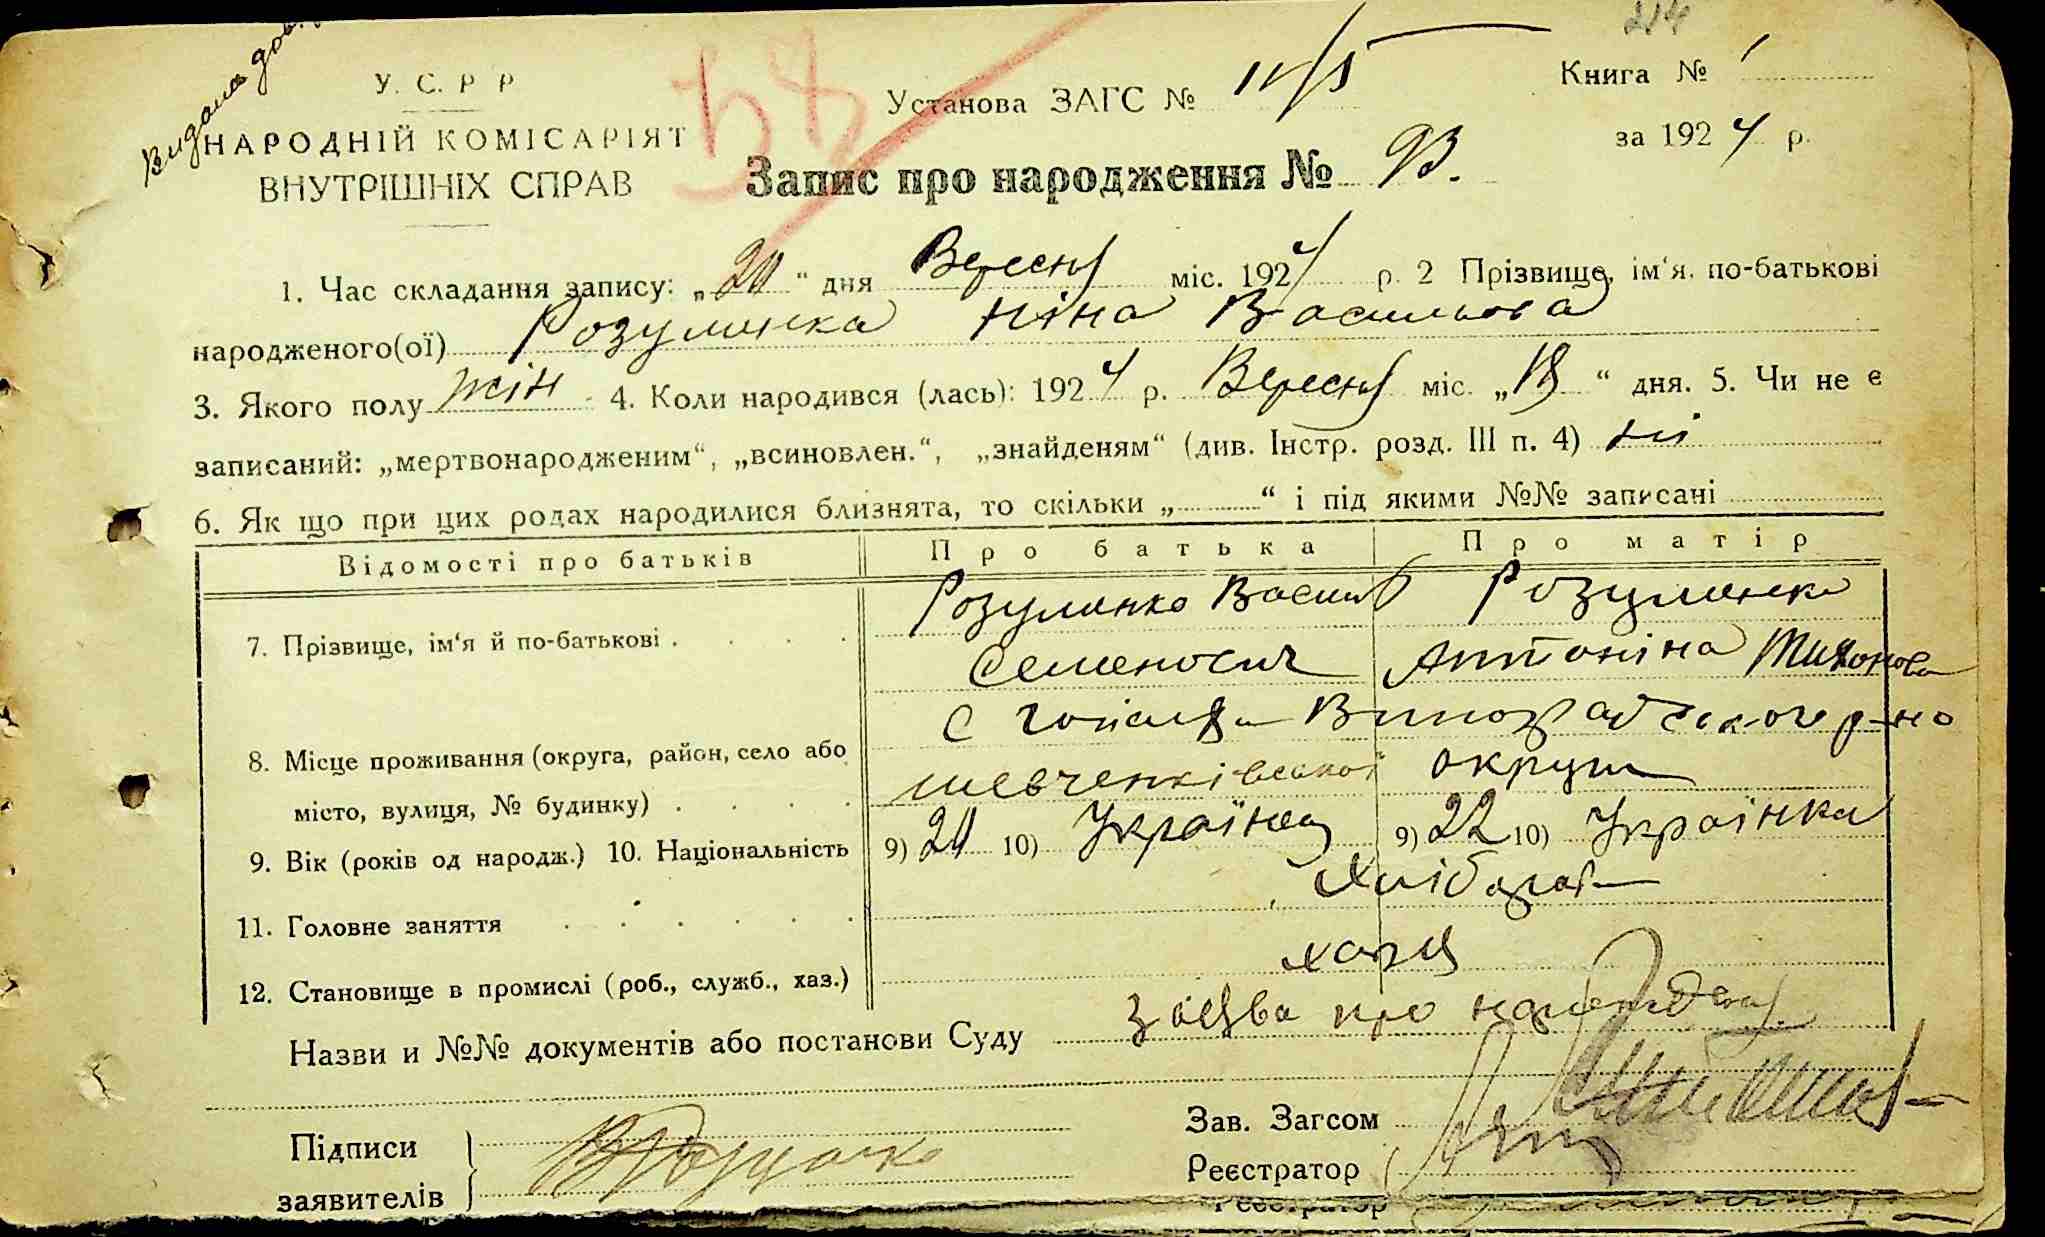 Видана дов.
У. С. Р Р
НАРОДНІЙ КОМІСАРІЯТ
ВНУТРІШНІХ СПРАВ
Установа ЗАГС №
Книга № 1
за 1924 р.
Запис про народження № 93.
1. Час складання запису: „20“ дня Вересня міс. 1924 р. 2 Прізвище, ім‘я. по-батькові
народженого(ої) Розуменка Ніна Васильова
3. Якого полу жін 4. Коли народився (лась): 1924 р. Вересня міс. „18“ дня. 5. Чи не є
записаний: „мертвонародженим“, „всиновлен.“, „знайденям“ (див. Інстр. розд. III п. 4) ні
6. Як що при цих родах народилися близнята, то скільки „ “ і під якими №№ записані
Відомості про батьків Про батька Про матір
7. Прізвище, ім‘я й по-батькові . Розуменко Василь Розуменка
Семенович Антоніна Тихонова
8. Місце проживання (округа, район, село або с Виноградського р-но
місто, вулиця, № будинку) . Шевченківської округи
9. Вік (років од народж.) 10. Національність 9) 20 10) Українец 9) 22 10) Українка
11. Головне заняття Хлібороб
12. Становище в промислі (роб., служб., хаз.) хазя
Назви и №№ документів або постанови Суду заява про народження
Підписи
заявителів
Зав. Загсом
Реєстратор
Реєстратор